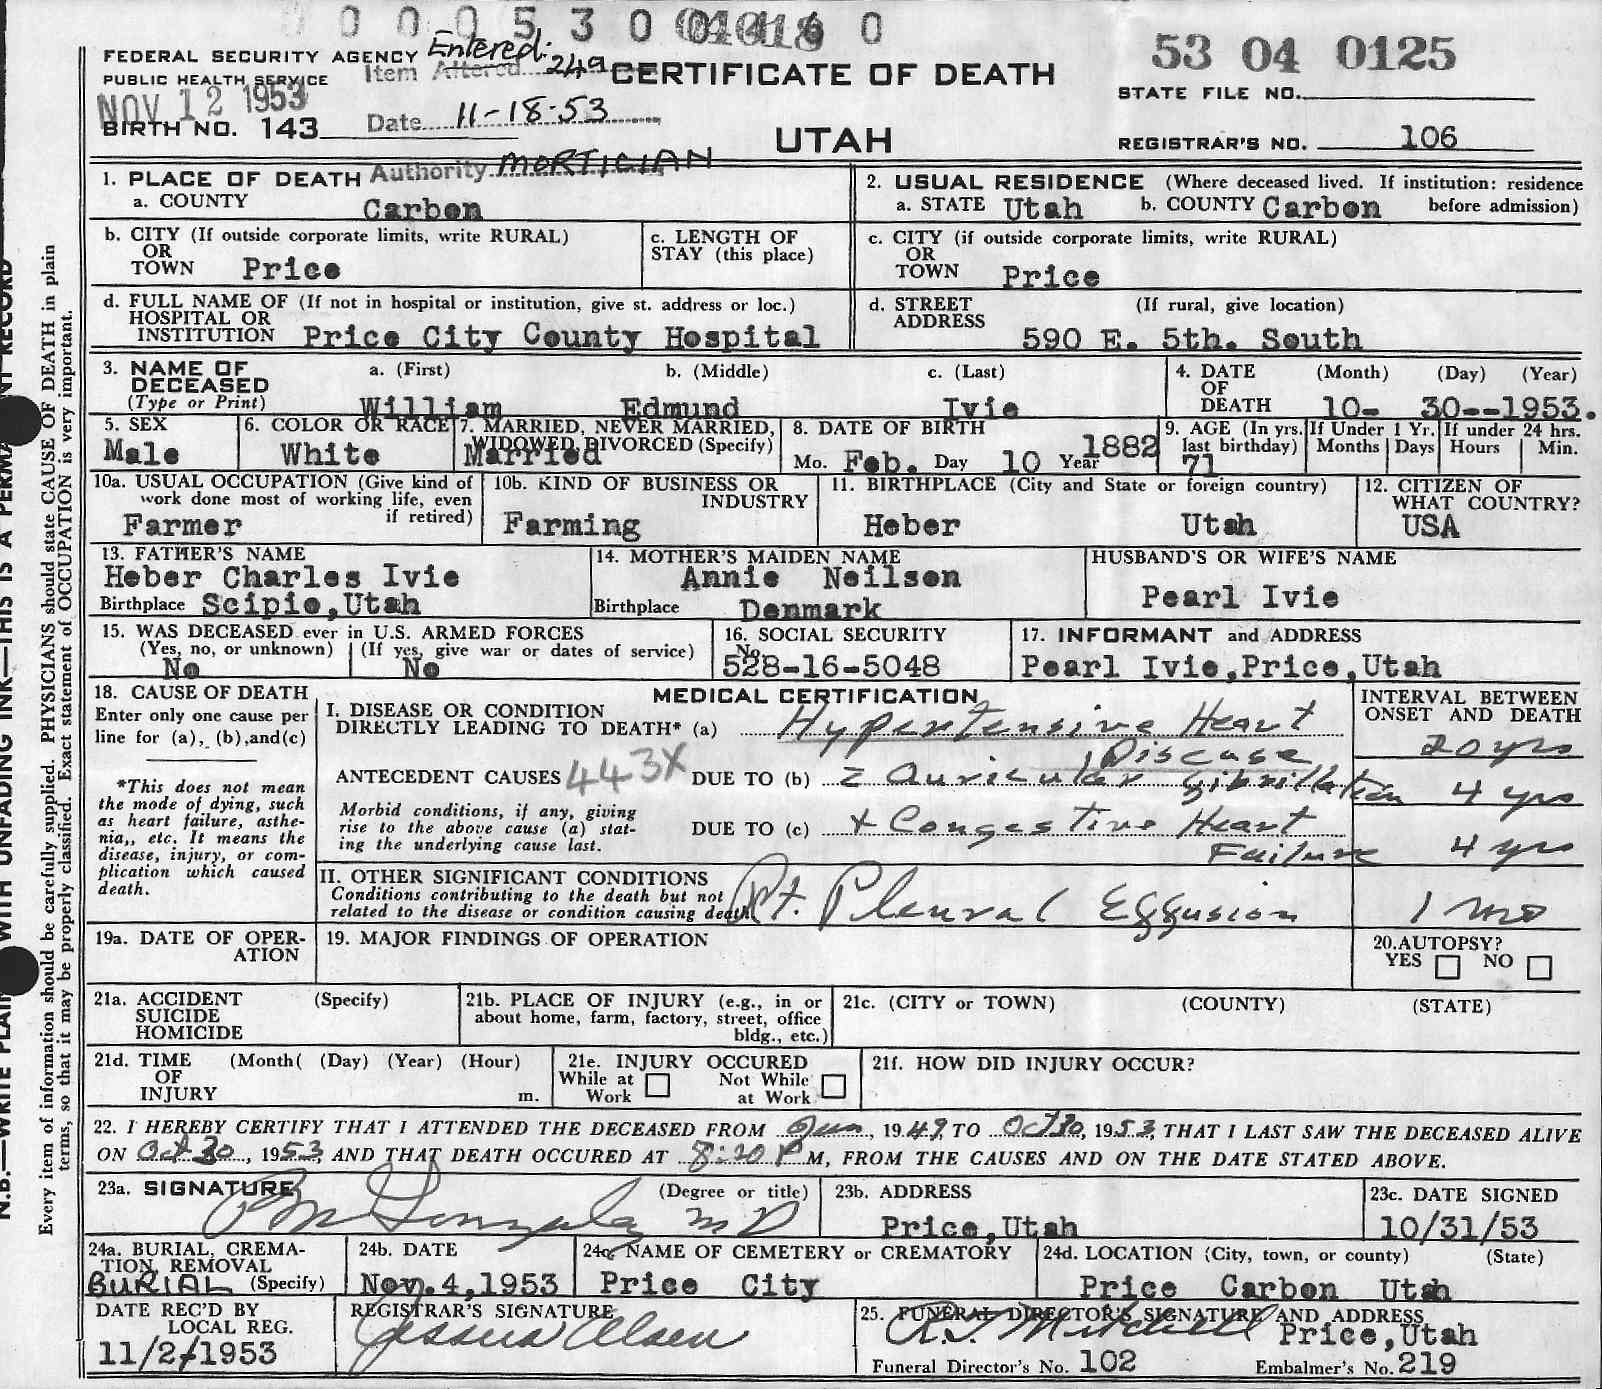 0 0 0 5 3 0 0
53 04 0125
FEDERAL SECURITY AGENCY Entered.
PUBLIC HEALTH SERVICE Item Altered 24a CERTIFICATE OF DEATH
STATE FILE NO.
NOV 12 1953
BIRTH NO. 143 Date 11-18-53
UTAH
REGISTRAR'S NO. 106
Authority MORTICIAN
1. PLACE OF DEATH
a. COUNTY Carbon
2. USUAL RESIDENCE (Where deceased lived. If institution: residence
a. STATE Utah b. COUNTY Carbon before admission)
b. CITY (If outside corporate limits, write RURAL)
OR
TOWN Price
c. LENGTH OF
STAY (this place)
c. CITY (if outside corporate limits, write RURAL)
OR
TOWN Price
d. FULL NAME OF (If not in hospital or institution, give st. address or loc.)
HOSPITAL OR
INSTITUTION Price City County Hospital
d. STREET (If rural, give location)
ADDRESS 590 E. 5th. South
3. NAME OF a. (First) b. (Middle) c. (Last)
DECEASED
(Type or Print) William Edmund Ivie
4. DATE (Month) (Day) (Year)
OF
DEATH 10- 30--1953.
5. SEX
Male
6. COLOR OR RACE
White
7. MARRIED, NEVER MARRIED,
WIDOWED, DIVORCED (Specify)
Married
8. DATE OF BIRTH
Mo. Feb. Day 10 Year 1882
9. AGE (In yrs. last birthday)
71
If Under 1 Yr.
Months Days
If under 24 hrs.
Hours Min.
10a. USUAL OCCUPATION (Give kind of
work done most of working life, even
if retired)
Farmer
10b. KIND OF BUSINESS OR
INDUSTRY
Farming
11. BIRTHPLACE (City and State or foreign country)
Heber Utah
12. CITIZEN OF
WHAT COUNTRY?
USA
13. FATHER'S NAME
Heber Charles Ivie
Birthplace Scipio,Utah
14. MOTHER'S MAIDEN NAME
Annie Neilson
Birthplace Denmark
HUSBAND'S OR WIFE'S NAME
Pearl Ivie
15. WAS DECEASED ever in U.S. ARMED FORCES
(Yes, no, or unknown) (If yes, give war or dates of service)
No No
16. SOCIAL SECURITY
No.
528-16-5048
17. INFORMANT and ADDRESS
Pearl Ivie,Price,Utah
18. CAUSE OF DEATH
Enter only one cause per
line for (a), (b),and(c)
*This does not mean
the mode of dying, such
as heart failure, asthe-
nia,, etc. It means the
disease, injury, or com-
plication which caused
death.
MEDICAL CERTIFICATION
INTERVAL BETWEEN
ONSET AND DEATH
I. DISEASE OR CONDITION
DIRECTLY LEADING TO DEATH* (a) Hypertensive Heart
Disease 20 yrs
ANTECEDENT CAUSES 443X DUE TO (b) Auricular Fibrillation 4 yrs
Morbid conditions, if any, giving
rise to the above cause (a) stat-
ing the underlying cause last.
DUE TO (c) + Congestive Heart
Failure 4 yrs
II. OTHER SIGNIFICANT CONDITIONS
Conditions contributing to the death but not
related to the disease or condition causing death.
Rt. Pleural Effusion 1 mo
19a. DATE OF OPER-
ATION
19. MAJOR FINDINGS OF OPERATION
20.AUTOPSY?
YES NO
21a. ACCIDENT (Specify)
SUICIDE
HOMICIDE
21b. PLACE OF INJURY (e.g., in or
about home, farm, factory, street, office
bldg., etc.)
21c. (CITY or TOWN) (COUNTY) (STATE)
21d. TIME (Month( (Day) (Year) (Hour)
OF
INJURY m.
21e. INJURY OCCURED
While at Not While
Work at Work
21f. HOW DID INJURY OCCUR?
22. I HEREBY CERTIFY THAT I ATTENDED THE DECEASED FROM , 1949, TO Oct 30, 1953, THAT I LAST SAW THE DECEASED ALIVE
ON Oct 30, 1953, AND THAT DEATH OCCURED AT 8:20 P M, FROM THE CAUSES AND ON THE DATE STATED ABOVE.
23a. SIGNATURE (Degree or title)
MD
23b. ADDRESS
Price,Utah
23c. DATE SIGNED
10/31/53
24a. BURIAL, CREMA-
TION, REMOVAL
BURIAL (Specify)
24b. DATE
Nov.4,1953
24c. NAME OF CEMETERY or CREMATORY
Price City
24d. LOCATION (City, town, or county) (State)
Price Carbon Utah
DATE REC'D BY
LOCAL REG.
11/2/1953
REGISTRAR'S SIGNATURE
Olsen
25. FUNERAL DIRECTOR'S SIGNATURE AND ADDRESS
Mitchell Price,Utah
Funeral Director's No. 102 Embalmer's No. 219
Every item of information should be carefully supplied. PHYSICIANS should state CAUSE OF DEATH in plain
terms, so that it may be properly classified. Exact statement of OCCUPATION is very important.
N.B.—WRITE WITH UNFADING INK—THIS IS A RECORD